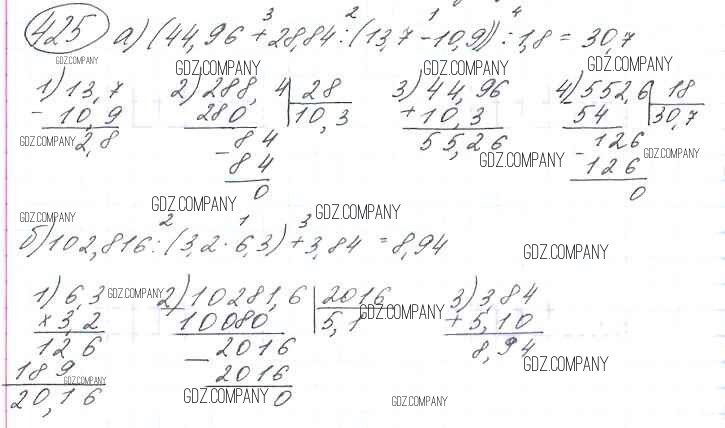 425 а) (44,96 + 28,84 : (13,7 - 10,9)) : 1,8 = 30,7
3 2 1 4
GDZ.COMPANY GDZ.COMPANY GDZ.COMPANY GDZ.COMPANY
1) 13,7 2) 288,4 28 3) 44,96 4) 552,6 18
- 10,9 280 10,3 + 10,3 54 30,7
2,8 84 55,26 126
GDZ.COMPANY - 84 GDZ.COMPANY - 126 GDZ.COMPANY
0 0
GDZ.COMPANY GDZ.COMPANY GDZ.COMPANY
2 1 3
б) 102,816 : (3,2 · 6,3) + 3,84 = 8,94 GDZ.COMPANY
1) 6,3 GDZ.COMPANY 2) 10281,6 2016 3) 3,84
× 3,2 10080 5,1 GDZ.COMPANY + 5,10
126 - 2016 8,94
189 GDZ.COMPANY 2016 GDZ.COMPANY
20,16 GDZ.COMPANY 0 GDZ.COMPANY